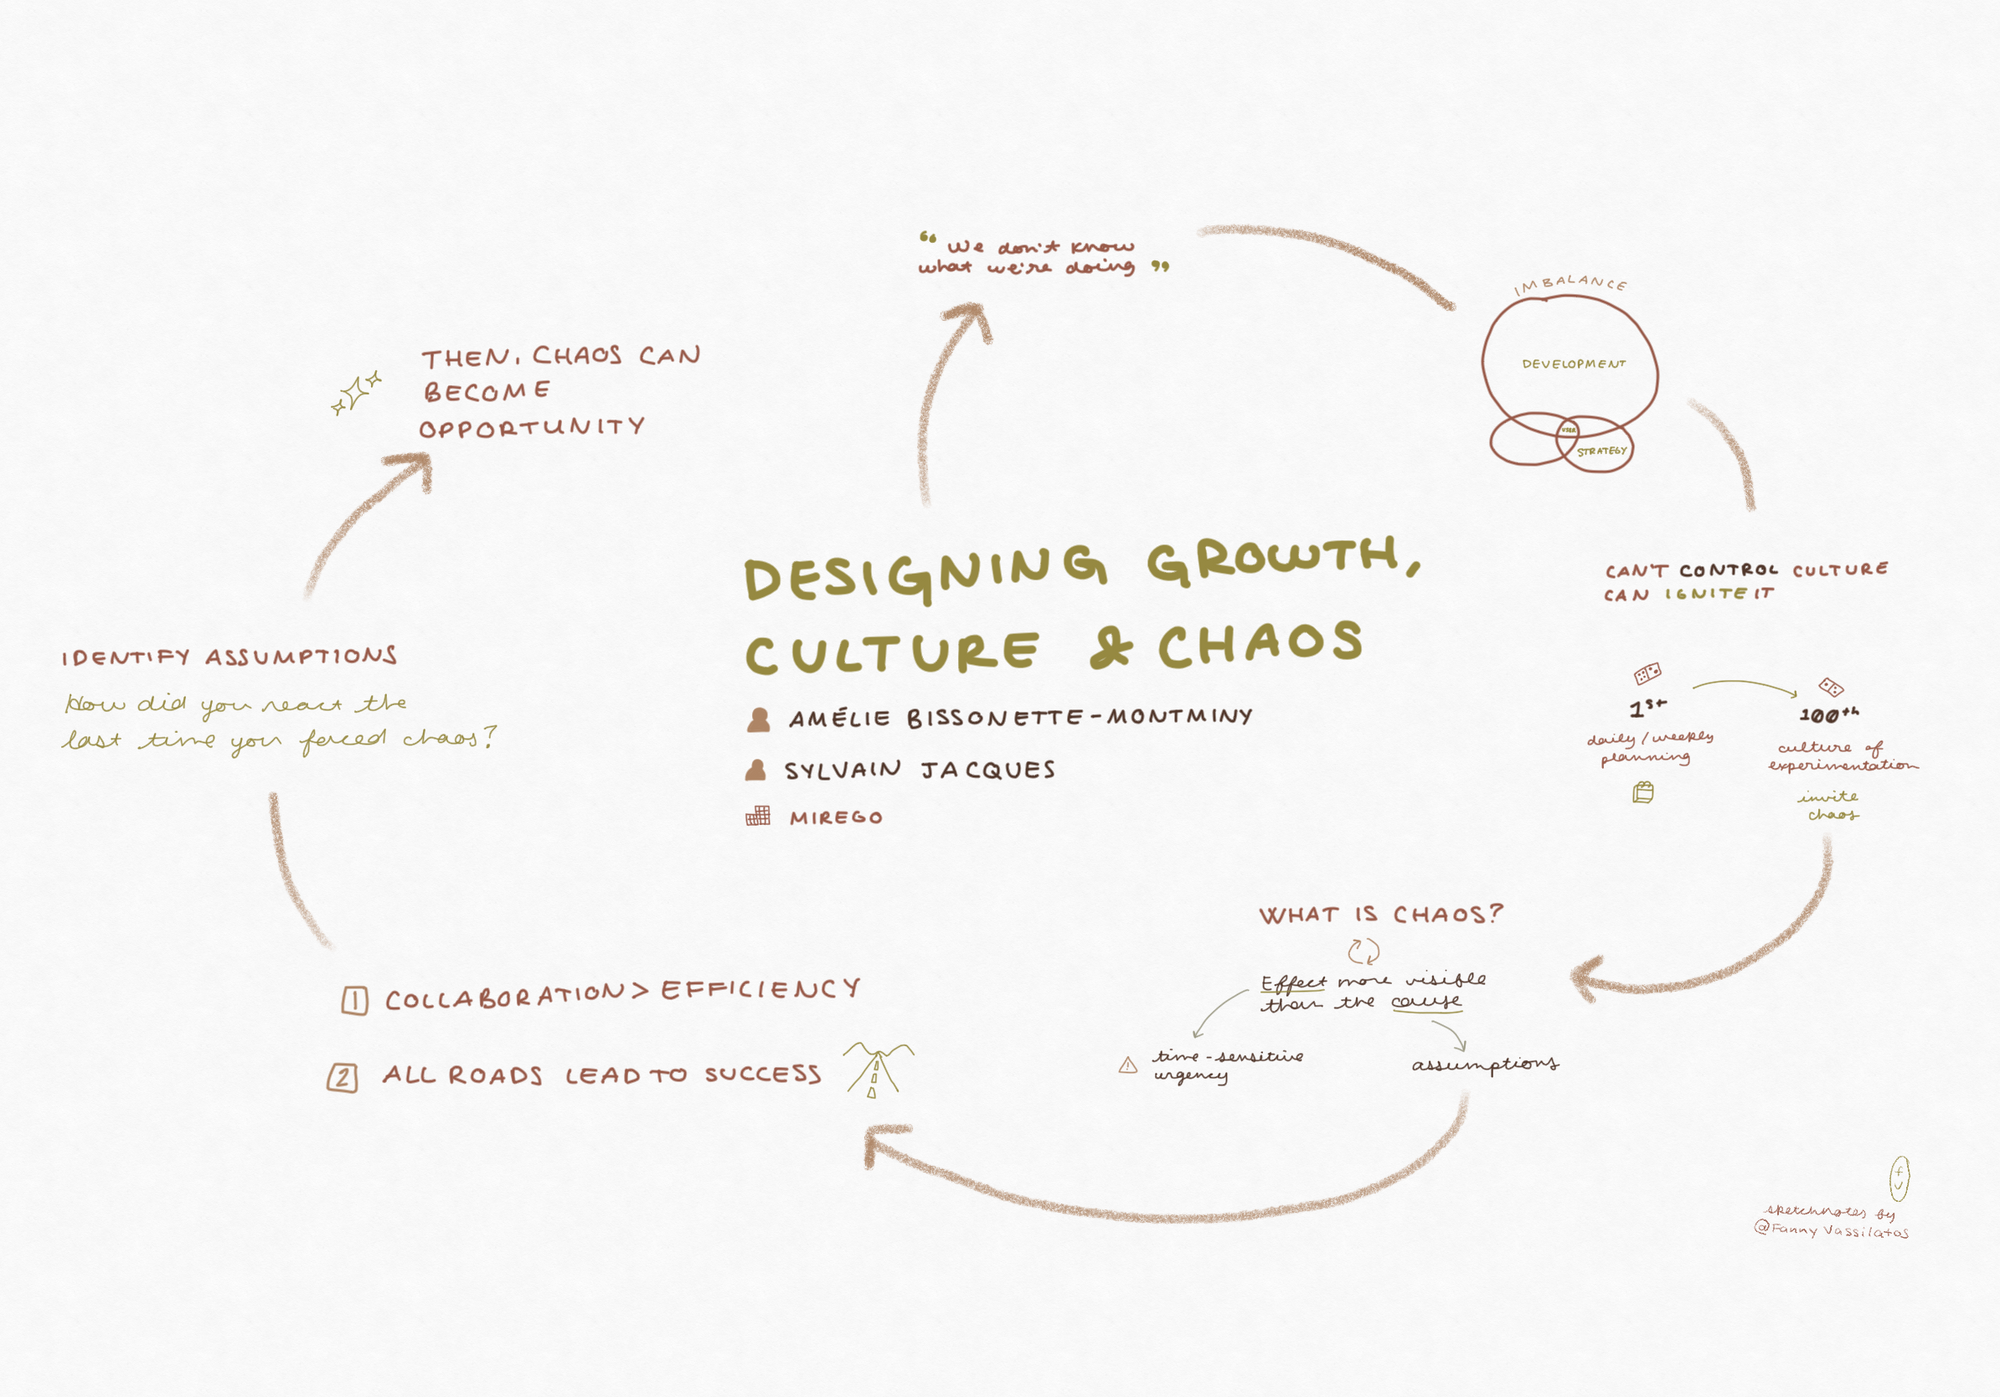 DESIGNING GROWTH,
CULTURE & CHAOS
AMÉLIE BISSONETTE-MONTMINY
SYLVAIN JACQUES
MIREGO
“We don't know
what we're doing”
IMBALANCE
DEVELOPMENT
USER
STRATEGY
CAN'T CONTROL CULTURE
CAN IGNITE IT
1st
daily/weekly
planning
100th
culture of
experimentation
invite
chaos
WHAT IS CHAOS?
Effect more visible
than the cause
time-sensitive
urgency
assumptions
1 COLLABORATION > EFFICIENCY
2 ALL ROADS LEAD TO SUCCESS
IDENTIFY ASSUMPTIONS
How did you react the
last time you faced chaos?
THEN, CHAOS CAN
BECOME
OPPORTUNITY
f
v
sketchnotes by
@Fanny Vassilatos